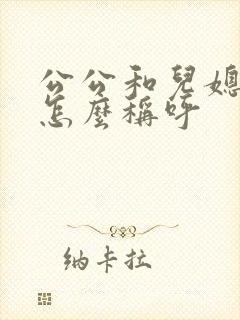 公公和兒媳
怎麼稱呼
納卡拉